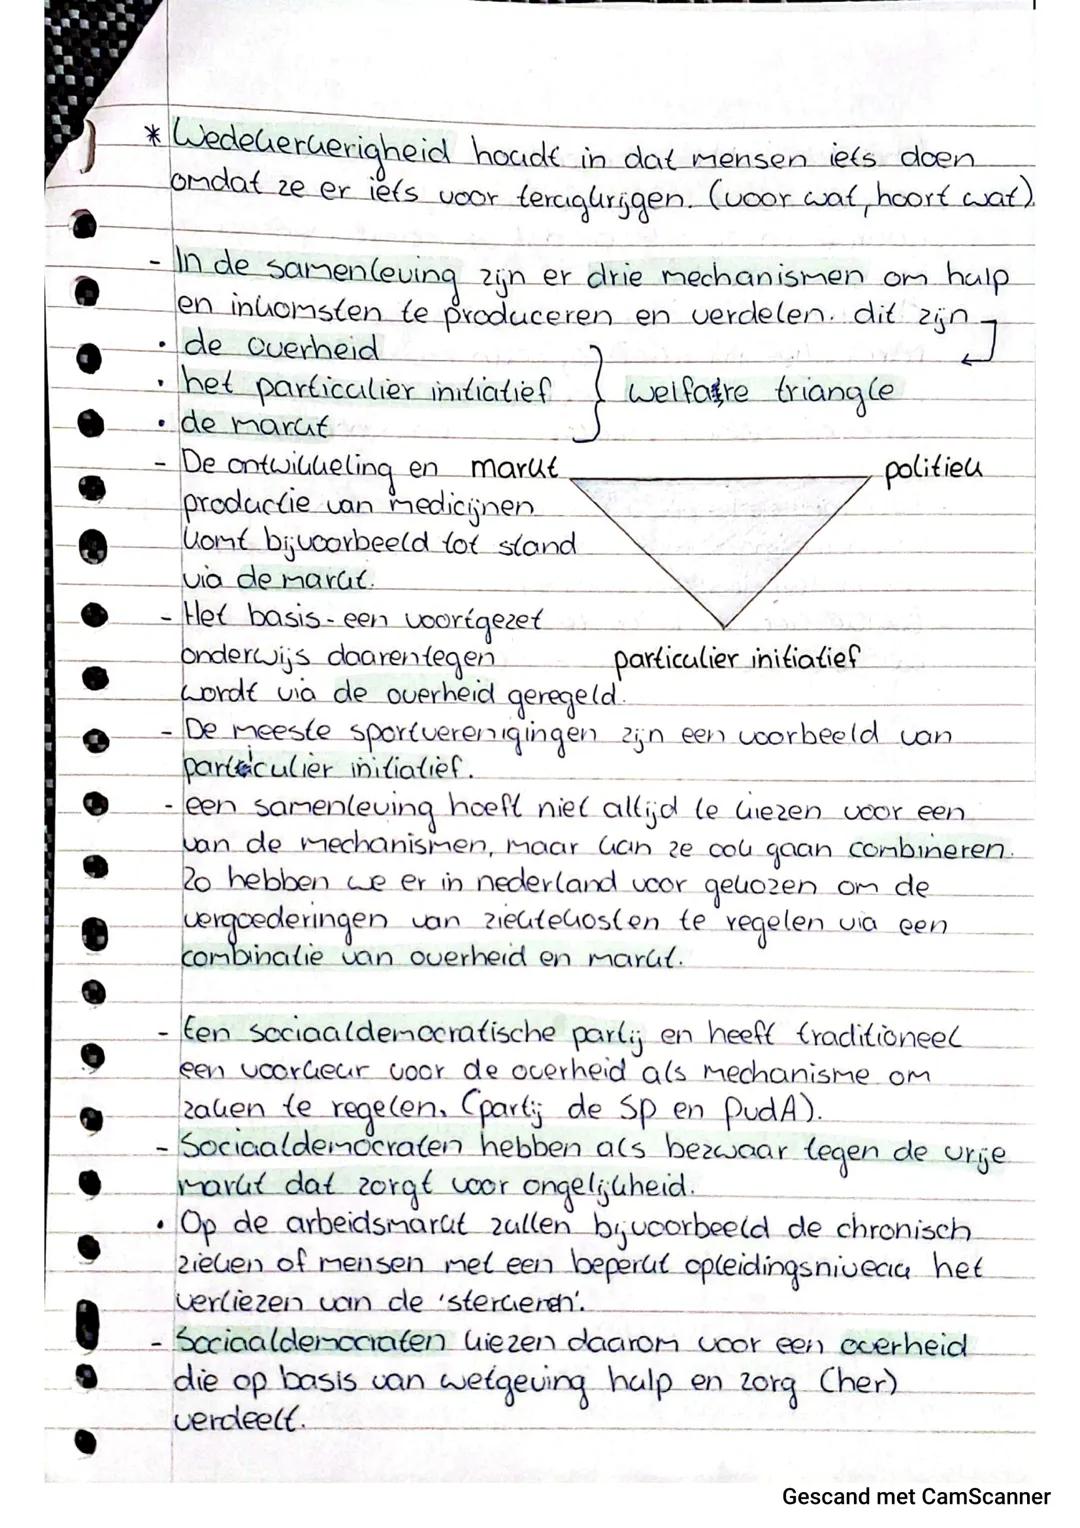 * Wederkerigheid houdt in dat mensen iets doen
omdat ze er iets voor terugkrijgen. (voor wat, hoort wat).
- In de samenleving zijn er drie mechanismen om hulp
en inkomsten te produceren en verdelen. dit zijn
• de overheid
• het particulier initiatief } welfare triangle
• de markt
- De ontwikkeling en markt politiek
productie van medicijnen
komt bijvoorbeeld tot stand
via de markt.
- Het basis- een voortgezet
onderwijs daarentegen particulier initiatief
wordt via de overheid geregeld.
- De meeste sportverenigingen zijn een voorbeeld van
particulier initiatief.
- een samenleving hoeft niet altijd te kiezen voor een
van de mechanismen, maar kan ze ook gaan combineren.
Zo hebben we er in nederland voor gekozen om de
vergoederingen van ziektekosten te regelen via een
combinatie van overheid en markt.
- Een sociaaldemocratische partij en heeft traditioneel
een voorkeur voor de overheid als mechanisme om
zaken te regelen. (partij de Sp en PvdA).
- Sociaaldemocraten hebben als bezwaar tegen de vrije
markt dat zorgt voor ongelijkheid.
• Op de arbeidsmarkt zullen bijvoorbeeld de chronisch
zieken of mensen met een beperkt opleidingsniveau het
verliezen van de 'sterkeren'.
- Sociaaldemocraten kiezen daarom voor een overheid
die op basis van wetgeving hulp en zorg (her)
verdeelt.
Gescand met CamScanner